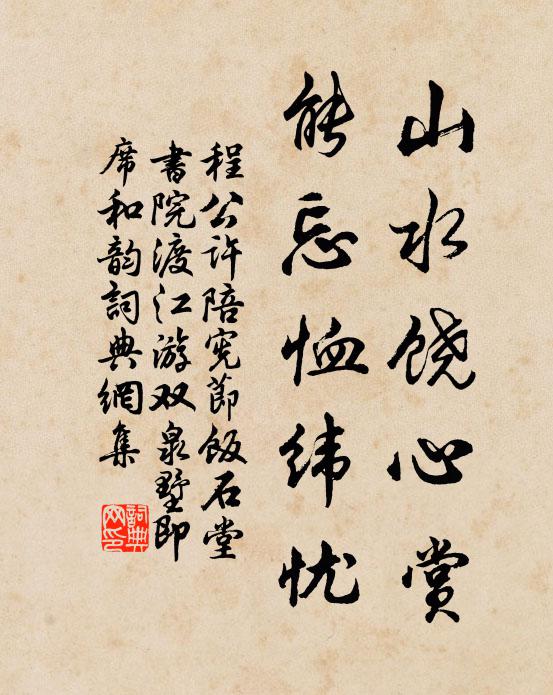 山水饶心赏
能忘恤纬忧
程公许陪宪節飯石堂
書院渡江游双泉墅即
席和韵詞典網集
詞典网印